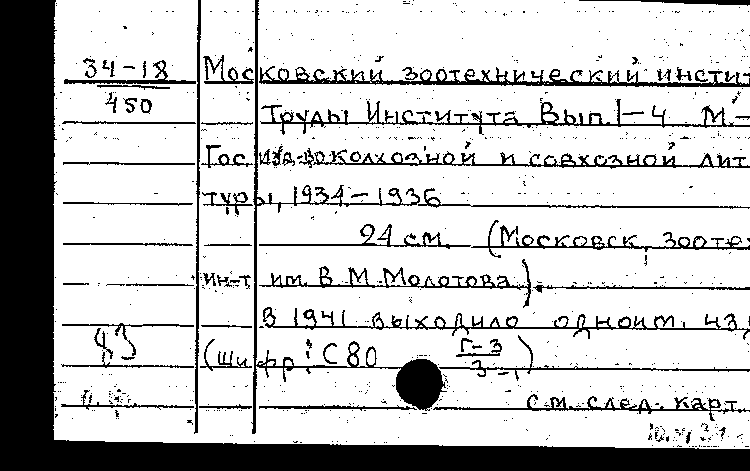 34-18 Московский зоотехнический инстит
450 Труды Института. Вып. I-4 М.-
Гос. изд-во колхозной и совхозной лит
туры, 1934-1936
24 см. (Московск. зооте
ин-т им. В. М. Молотова).
В 1941 выходило одноим. из
83 (шифр: С 80 Г-3
3-1)
см. след. карт.